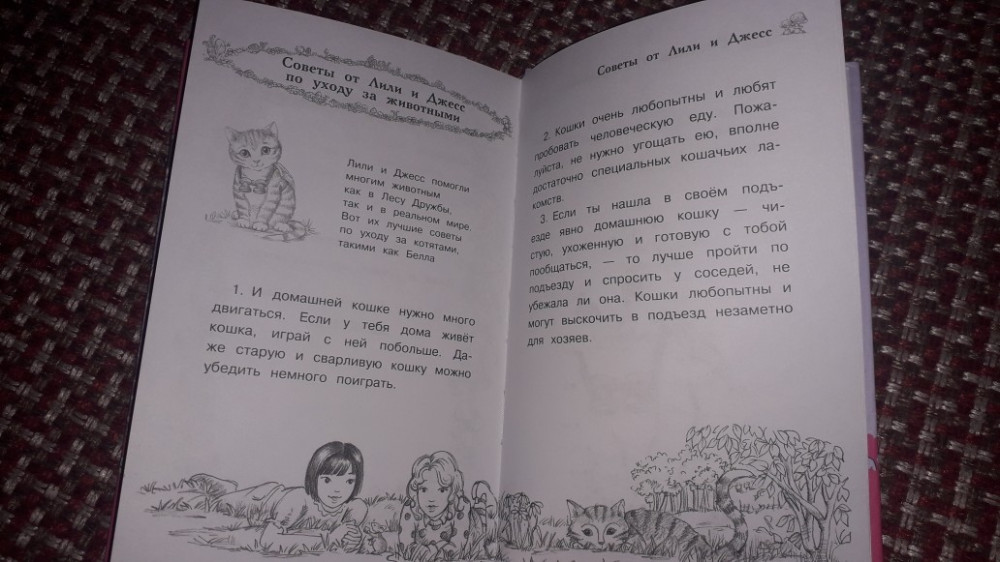 Советы от Лили и Джесс
по уходу за животными
Лили и Джесс помогли
многим животным
как в Лесу Дружбы,
так и в реальном мире.
Вот их лучшие советы
по уходу за котятами,
такими как Белла
1. И домашней кошке нужно много
двигаться. Если у тебя дома живёт
кошка, играй с ней побольше. Да-
же старую и сварливую кошку можно
убедить немного поиграть.
Советы от Лили и Джесс
2. Кошки очень любопытны и любят
пробовать человеческую еду. Пожа-
луйста, не нужно угощать ею, вполне
достаточно специальных кошачьих ла-
комств.
3. Если ты нашла в своём подъ-
езде явно домашнюю кошку — чи-
стую, ухоженную и готовую с тобой
пообщаться, — то лучше пройти по
подъезду и спросить у соседей, не
убежала ли она. Кошки любопытны и
могут выскочить в подъезд незаметно
для хозяев.